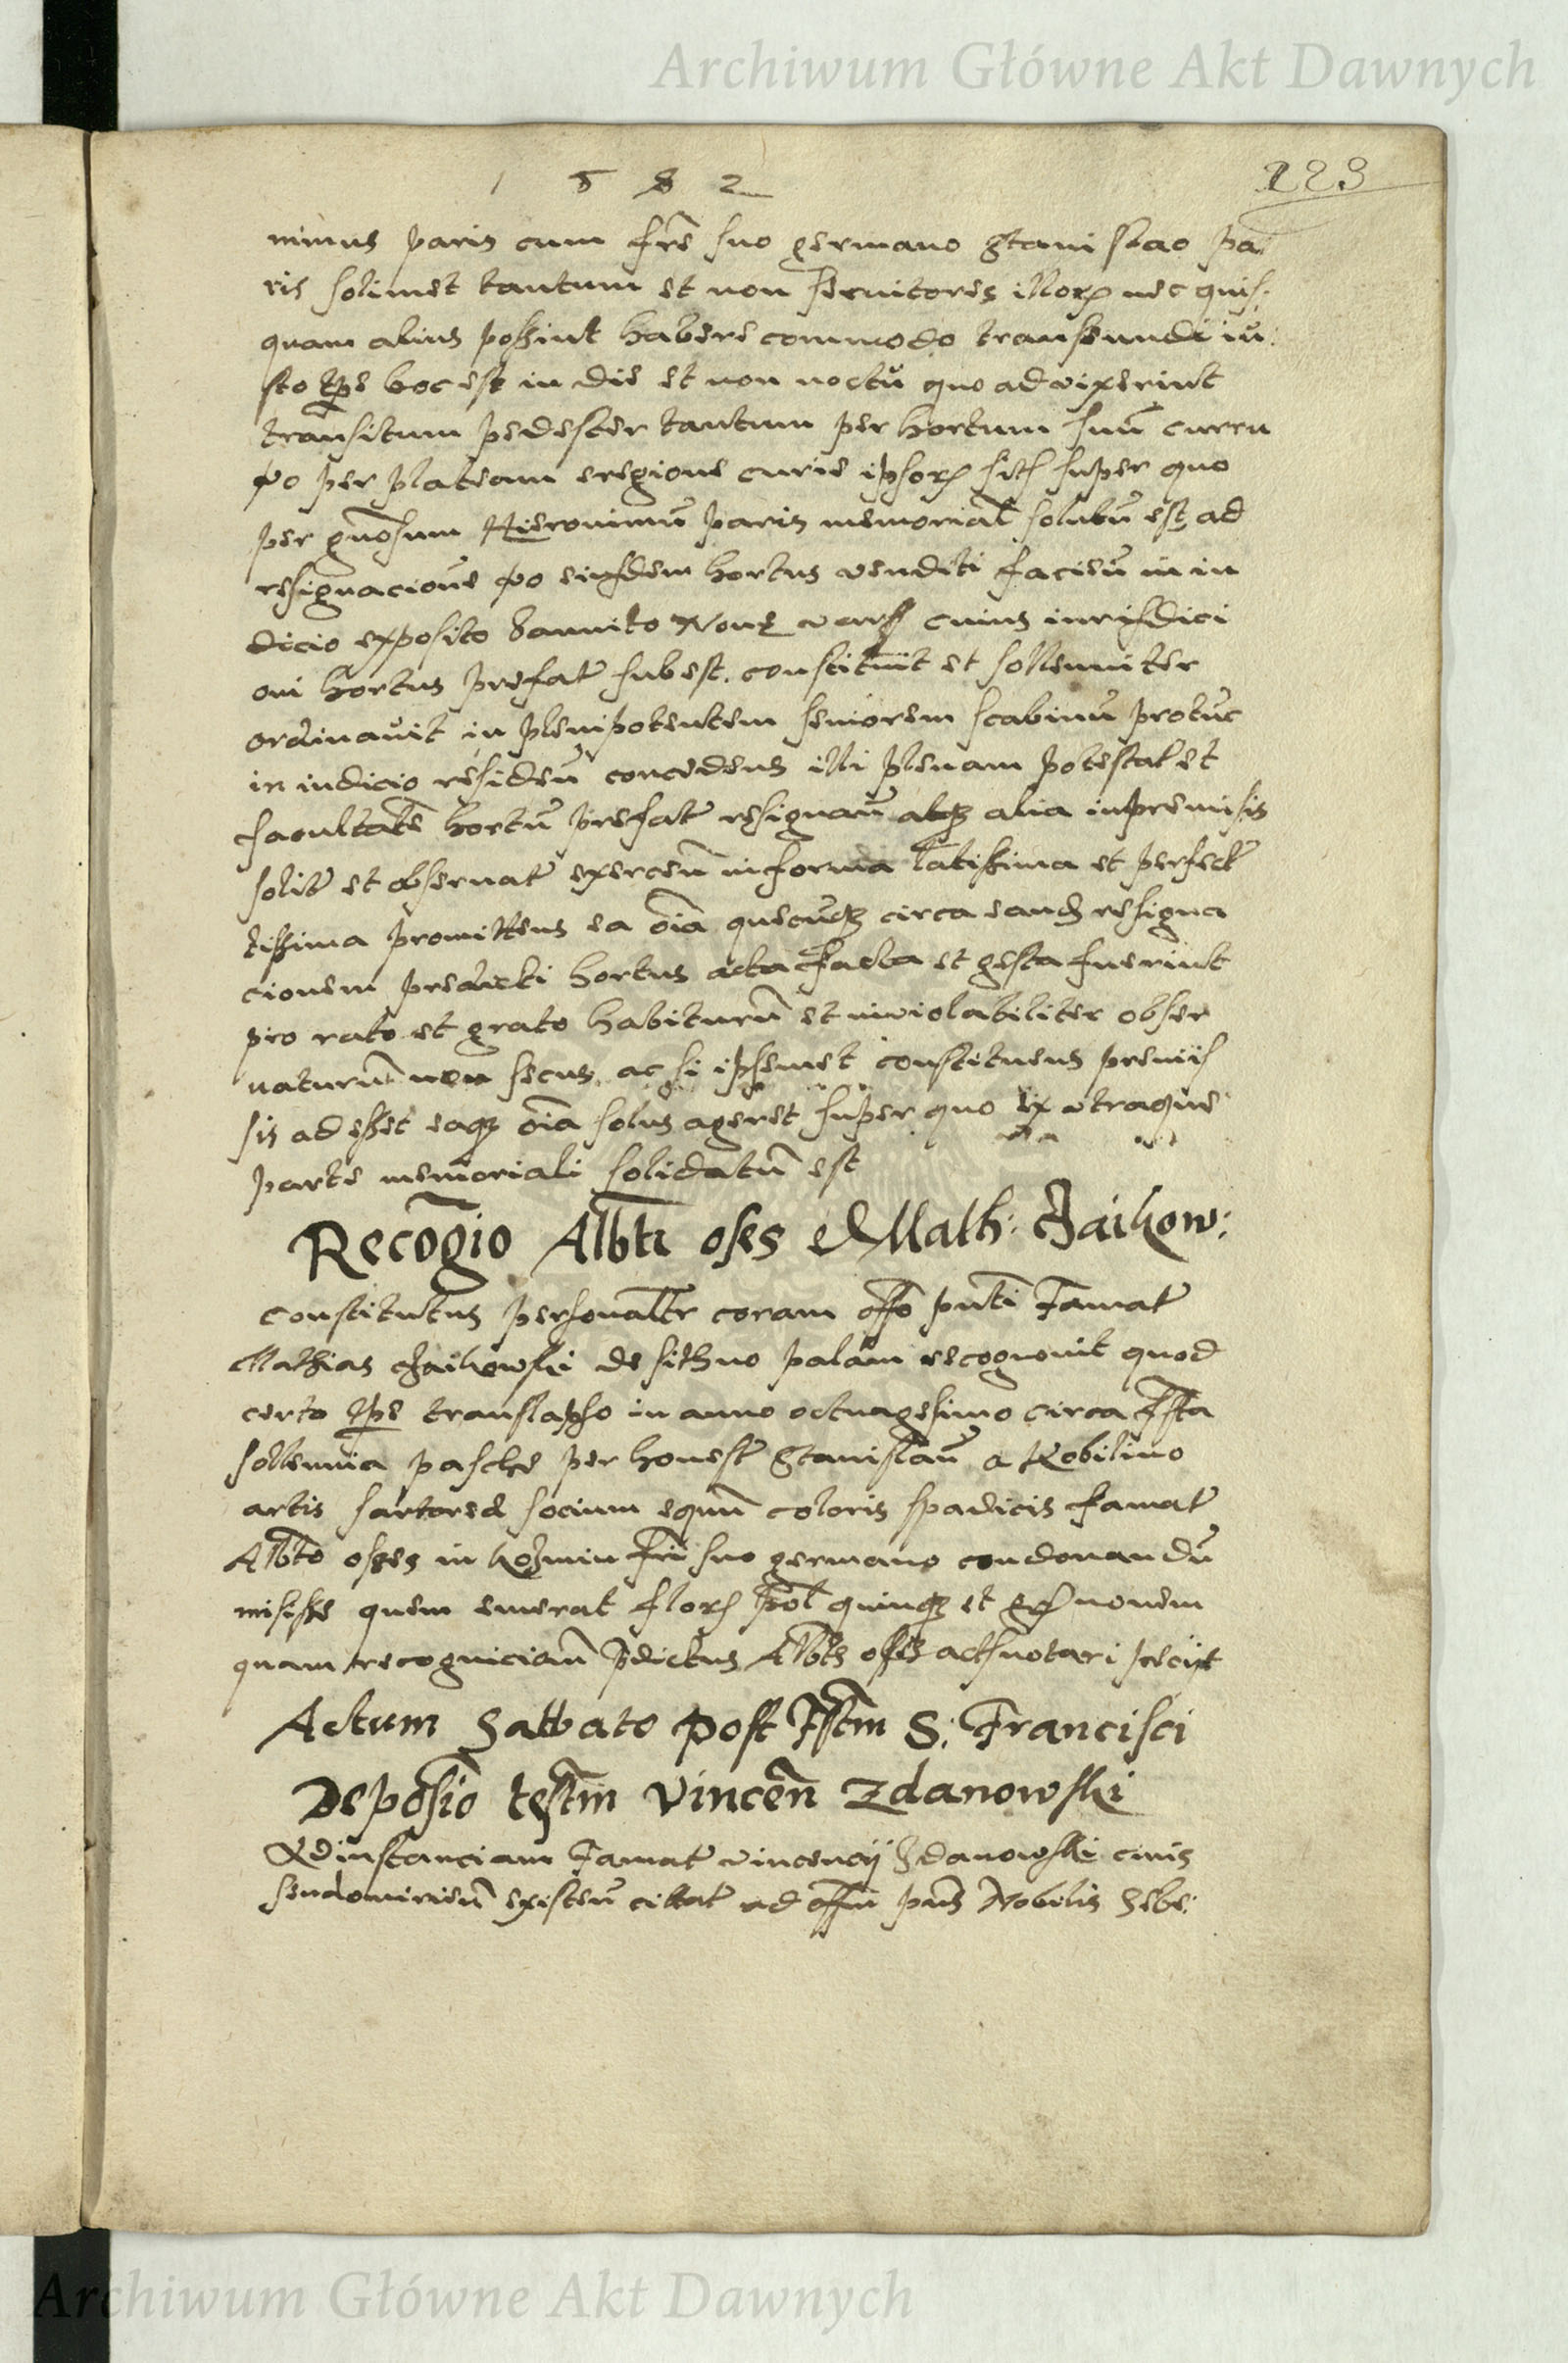 Archiwum Główne Akt Dawnych
1 5 8 2
223
nimus paris cum fr̃e suo germano Stanislao pa
ris solimet tantum et non seruitores illorꝝ nec quis:
quam alius possint habere commodo transeundi iu:
sto tꝑe hoc est in die et non noctu quo ad vixerint
transitum pedester tantum per hortum suũ curru
ṽo per plateam eregione curie ipsorꝝ sit super quo
per gñosum Hieronimũ paris memorial solutũ est ad
resignacione ṽo eiusdem hortus venditi facieñ in iu
dicio exposito bannito Noue Wars cuius iurisdici
oni hortus prefat subest. constituit et sollenniter
ordinauit in plenipotentem seniorem scabinũ protũc
in iudicio resideñ concedens illi plenam potestat et
facultatẽ hortũ prefat resignañ atqꝫ alia in premissis
solit et obseruat exerceñ in forma latissima et perfect
tissima promittens ea oĩa quecũqꝫ circa eand resigna
cionem predicti hortus acta facta et gesta fuerint
pro rato et grato habiturũ et inviolabiliter obser
uaturũ non secus ac si ipsemet constituens premis
sis adesset eaqꝫ oĩa solus ageret super quo ex utraque
parte memoriali solidatũ est
Recog̃io Alb̃ti oses et Math: Czaikow:
Constitutus personalr coram off̃o pñti Famat
Mathias Czaikowski de sithno palam recognouit quod
certo tꝑe translapso in anno octuagesimo circa festa
sollennia pasche per honest Stanislaũ a Kobilino
artis sartorea socium equũ coloris spadicis famat
Alb̃to osses in kozmin fr̃i suo germano condonandũ
misisse quem emerat flor pol quinqꝫ et gr nouem
quam recognicioñ p̃dictus Alb̃ts oses act notari fecit
Actum Sabbato post Fest̃m S: Francisci
Deposĩo testm̃ Vinceñ Zdanowski
Ad instanciam Famat Vincencij Zdanowski ciuis
sendomirieñ existeñ citat ad offm̃ pñs Nobilis Seba:
Archiwum Główne Akt Dawnych